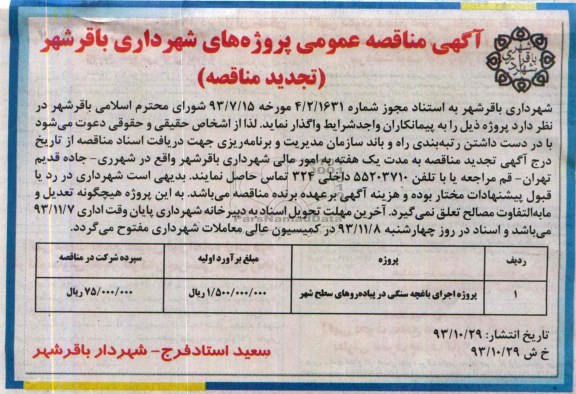 آگهی مناقصه عمومی پروژه‌های شهرداری باقرشهر
(تجدید مناقصه)
شهرداری باقرشهر به استناد مجوز شماره ۴/۲/۱۶۳۱ مورخه ۹۳/۷/۱۵ شورای محترم اسلامی باقرشهر در
نظر دارد پروژه ذیل را به پیمانکاران واجدشرایط واگذار نماید. لذا از اشخاص حقیقی و حقوقی دعوت می‌شود
با در دست داشتن رتبه‌بندی راه و باند سازمان مدیریت و برنامه‌ریزی جهت دریافت اسناد مناقصه از تاریخ
درج آگهی تجدید مناقصه به مدت یک هفته به امور مالی شهرداری باقرشهر واقع در شهرری- جاده قدیم
تهران- قم مراجعه یا با تلفن ۵۵۲۰۳۷۱۰ داخلی ۳۲۴ تماس حاصل نمایند. بدیهی است شهرداری در رد یا
قبول پیشنهادات مختار بوده و هزینه آگهی برعهده برنده مناقصه می‌باشد. به این پروژه هیچگونه تعدیل و
مابه‌التفاوت مصالح تعلق نمی‌گیرد. آخرین مهلت تحویل اسناد به دبیرخانه شهرداری پایان وقت اداری ۹۳/۱۱/۷
می‌باشد و اسناد در روز چهارشنبه ۹۳/۱۱/۸ در کمیسیون عالی معاملات شهرداری مفتوح می‌گردد.
ردیف پروژه مبلغ برآورد اولیه سپرده شرکت در مناقصه
۱ پروژه اجرای باغچه سنگی در پیاده‌روهای سطح شهر ۱/۵۰۰/۰۰۰/۰۰۰ ریال ۷۵/۰۰۰/۰۰۰ ریال
تاریخ انتشار: ۹۳/۱۰/۲۹
خ ش ۹۳/۱۰/۲۹
سعید استادفرج- شهردار باقرشهر